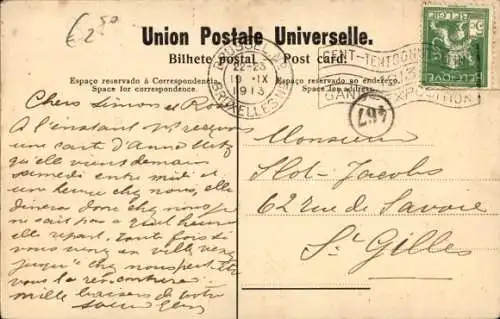 € 2.50
Union Postale Universelle.
Bilhete postal Post card.
Espaço reservado á Correspondencia. Espaço reservado ao endereço.
Space for correspondence. Space for address.
BRUSSEL
22-23
19 IX
1913
BRUXELLES
GENT-TENTOON
GAND EXPOSITION
467
Chers Simon et Rosa
A l'instant nous recevons
une carte d'Anna
qu'elle viens demain
samedi entre midi et
une heure chez nous, elle
dinera donc chez nous je
ne sait pas a quel heure
elle repart. Toute fois si
vous venez en ville venez
jusque chez nous peut être
vous la rencontrerez.
mille baisers de votre
soeur
Monsieur
Slot-Jacobs
62 rue de Savoie
St Gilles